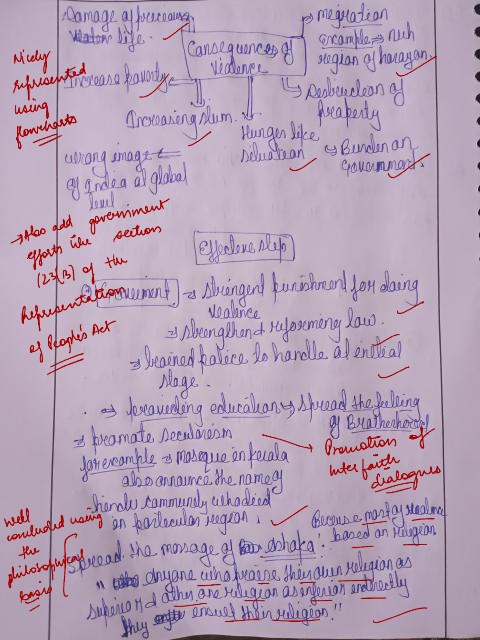 Damage of precious life.
Consequences of violence
→ migration
Example → Nuh region of harayana.
Nicely represented using flowcharts
Increase poverty
→ Destruction of praperty
Increasing slum.
Hunger like situation
→ Burden on Government.
wrong image of India at global level
→ Also add government efforts like section 123(3) of the Representation of People's Act
Effective step
Government → stringent punishment for doing voilence
→ strengthen & reforming law.
→ trained police to handle at initial stage.
→ providing education → spread the feeling of Brotherhood
→ promote secularism
for example → mosque in kerala
also announce the name of
hindu community who died
in particular region.
→ Promotion of Inter faith dialogues
Well concluded using the philosophical basis
Because most of voilence based on religion
Spread the message of Ashoka:
" Anyone who praise their own religion as
superior & other one religion as inferior indirectly
they insult their religion."